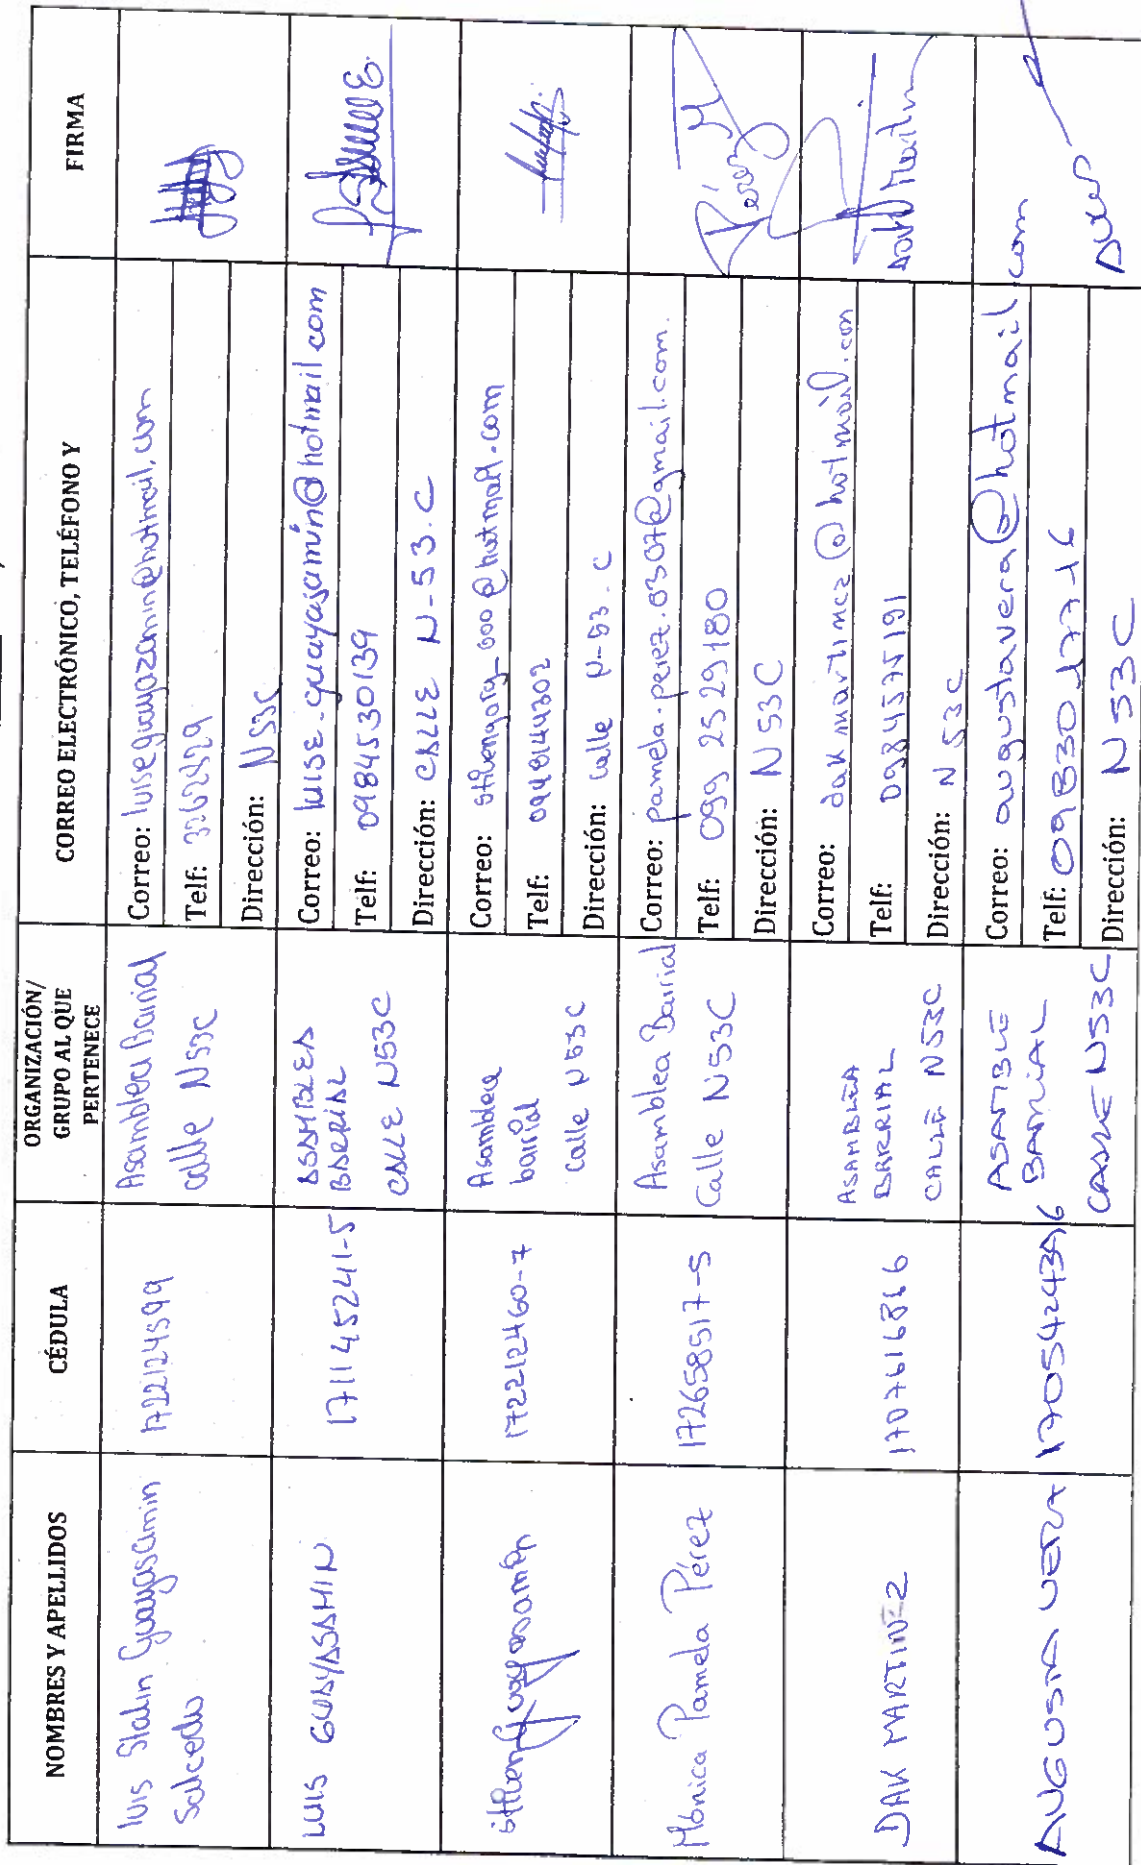 NOMBRES Y APELLIDOS
CÉDULA
ORGANIZACIÓN/
GRUPO AL QUE
PERTENECE
CORREO ELECTRÓNICO, TELÉFONO Y
FIRMA
Luis Stalin Guayasamin
Salcedo
1722124599
Asamblea Barrial
calle N53C
Correo: luiseguayazamin@hotmail.com
Telf: 3262429
Dirección: N53C
LUIS GUAYASAMIN
171145241-5
ASAMBLEA
BARRIAL
CALLE N53C
Correo: luise-guayasamin@hotmail.com
Telf: 0984530139
Dirección: CALLE N-53.C
Sthen Guayasamin
172212460-7
Asamblea
barrial
Calle N53C
Correo:
Telf:
Dirección: Calle N-53.C
Mónica Pamela Pérez
172658517-5
Asamblea Barrial
Calle N53C
Correo: pamela.perez.0307@gmail.com.
Telf: 099 2529180
Dirección: N53C
Pérez M
DAK MARTINEZ
1707616866
ASAMBLEA
BARRIAL
CALLE N53C
Correo: dakmartinez@hotmail.com
Telf: 0984575191
Dirección: N53C
AUGUSTA VERA
1705424396
ASAMBLE
BARRIAL
CALLE N53C
Correo: augustavera@hotmail.com
Telf: 0983017716
Dirección: N53C